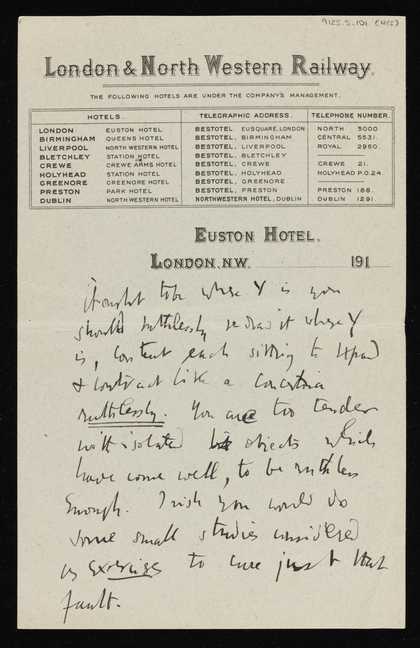 9125.5.101 (4(5)
London & North Western Railway.
THE FOLLOWING HOTELS ARE UNDER THE COMPANY'S MANAGEMENT.
HOTELS. TELEGRAPHIC ADDRESS. TELEPHONE NUMBER.
LONDON EUSTON HOTEL BESTOTEL, EUSQUARE, LONDON NORTH 3000
BIRMINGHAM QUEENS HOTEL BESTOTEL, BIRMINGHAM CENTRAL 5531.
LIVERPOOL NORTH WESTERN HOTEL BESTOTEL, LIVERPOOL ROYAL 2950.
BLETCHLEY STATION HOTEL BESTOTEL, BLETCHLEY
CREWE CREWE ARMS HOTEL BESTOTEL, CREWE CREWE 21.
HOLYHEAD STATION HOTEL BESTOTEL, HOLYHEAD HOLYHEAD P.O.24.
GREENORE GREENORE HOTEL BESTOTEL, GREENORE
PRESTON PARK HOTEL BESTOTEL, PRESTON PRESTON 188.
DUBLIN NORTH WESTERN HOTEL NORTHWESTERN HOTEL, DUBLIN DUBLIN 1291.
EUSTON HOTEL.
LONDON, N.W. 191
it ought to be where Y is you
should ruthlessly redraw it where Y
is, content each sitting to expand
& contract like a concertina
ruthlessly. You are too tender
with isolated objects which
have come well, to be ruthless
enough. I wish you would do
some small studies considered
as exercises to cure just that
fault.